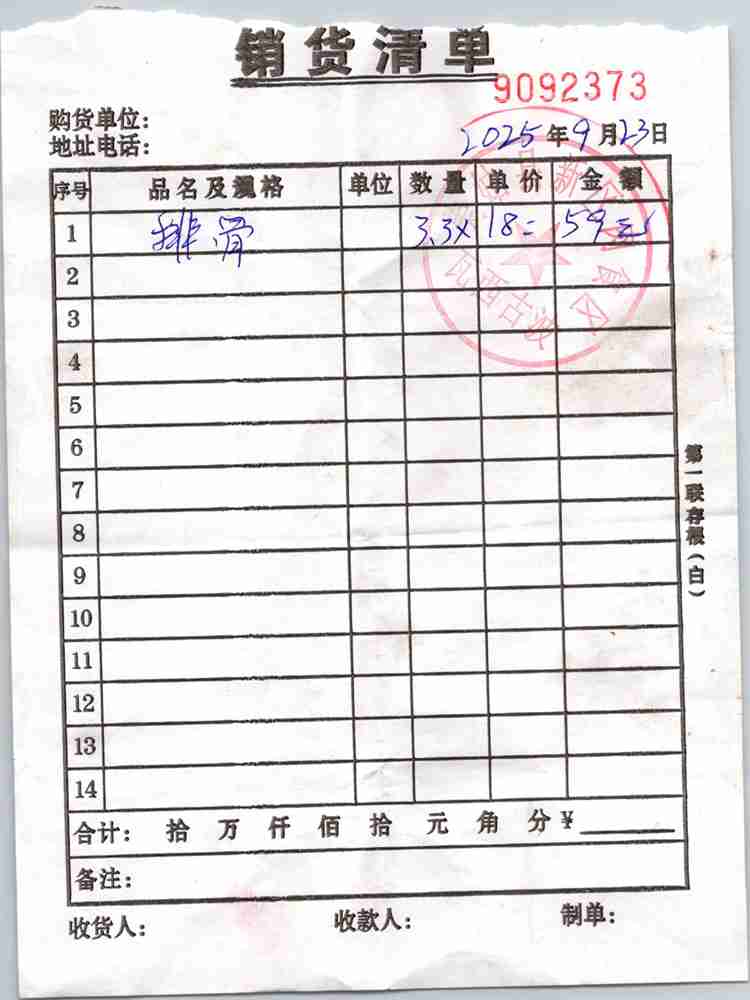 销货清单
9092373
购货单位：
地址电话：
2025年9月23日
序号 品名及规格 单位 数量 单价 金额
1 排骨 3.3x 18= 59元
2
3
4
5
6
7
8
9
10
11
12
13
14
合计： 拾 万 仟 佰 拾 元 角 分 ¥
备注：
收货人： 收款人： 制单：
第一联存根（白）
瓦西古波